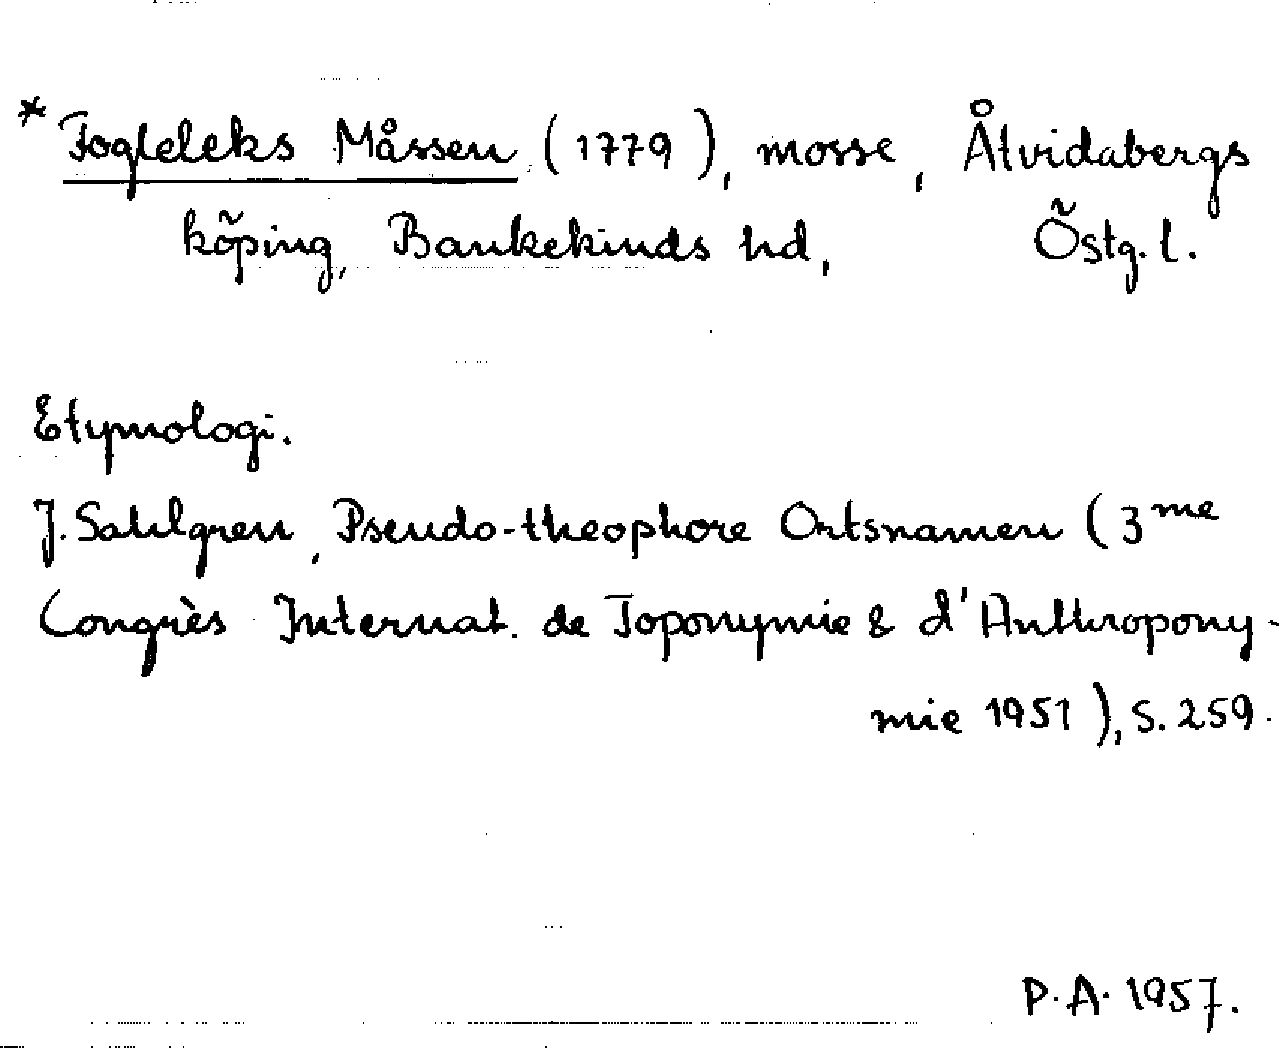 * Fogleleks Måssen (1779), mosse, Åtvidabergs
köping, Bankekinds hd, Östg. l.
Etymologi.
J. Sahlgren, Pseudo-theophore Ortsnamen (3me
Congrès Internat. de Toponymie & d'Anthropony-
mie 1951), S. 259.
P. A. 1957.